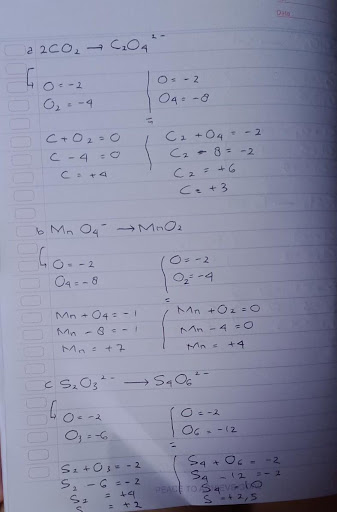 Date
a 2CO₂ → C₂O₄²⁻
O = -2
O₂ = -4
O = -2
O₄ = -8
C + O₂ = 0
C - 4 = 0
C = +4
C₂ + O₄ = -2
C₂ - 8 = -2
C₂ = +6
C = +3
b MnO₄⁻ → MnO₂
O = -2
O₄ = -8
O = -2
O₂ = -4
Mn + O₄ = -1
Mn - 8 = -1
Mn = +7
Mn + O₂ = 0
Mn - 4 = 0
Mn = +4
c S₂O₃²⁻ → S₄O₆²⁻
O = -2
O₃ = -6
O = -2
O₆ = -12
S₂ + O₃ = -2
S₂ - 6 = -2
S₂ = +4
S = +2
S₄ + O₆ = -2
S₄ - 12 = -2
S₄ = 10
S = +2,5